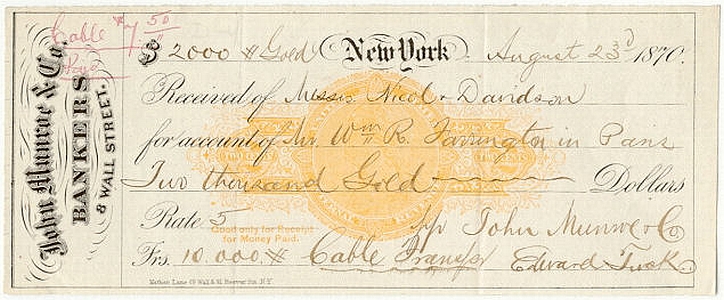 Cable $7 50
John Munroe & Co.
BANKERS
8 WALL STREET.
$2000 Gold New York August 23d 1870.
Received of Messrs. Nicol & Davidson
for account of Mr. Wm R. Farrington in Paris
Two thousand Gold Dollars
Rate 5 pp John Munroe & Co
Good only for Receipt
for Money Paid.
Frs. 10.000 Cable Transfer Edward Tuck.